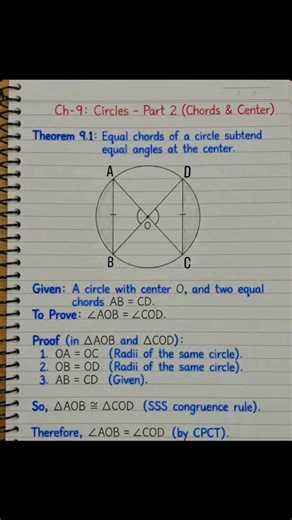 Ch-9: Circles - Part 2 (Chords & Center)
Theorem 9.1: Equal chords of a circle subtend
equal angles at the center.
A D
O
B C
Given: A circle with center O, and two equal
chords AB = CD.
To Prove: ∠AOB = ∠COD.
Proof (in △AOB and △COD):
1. OA = OC (Radii of the same circle).
2. OB = OD (Radii of the same circle).
3. AB = CD (Given).
So, △AOB ≅ △COD (SSS congruence rule).
Therefore, ∠AOB = ∠COD (by CPCT).